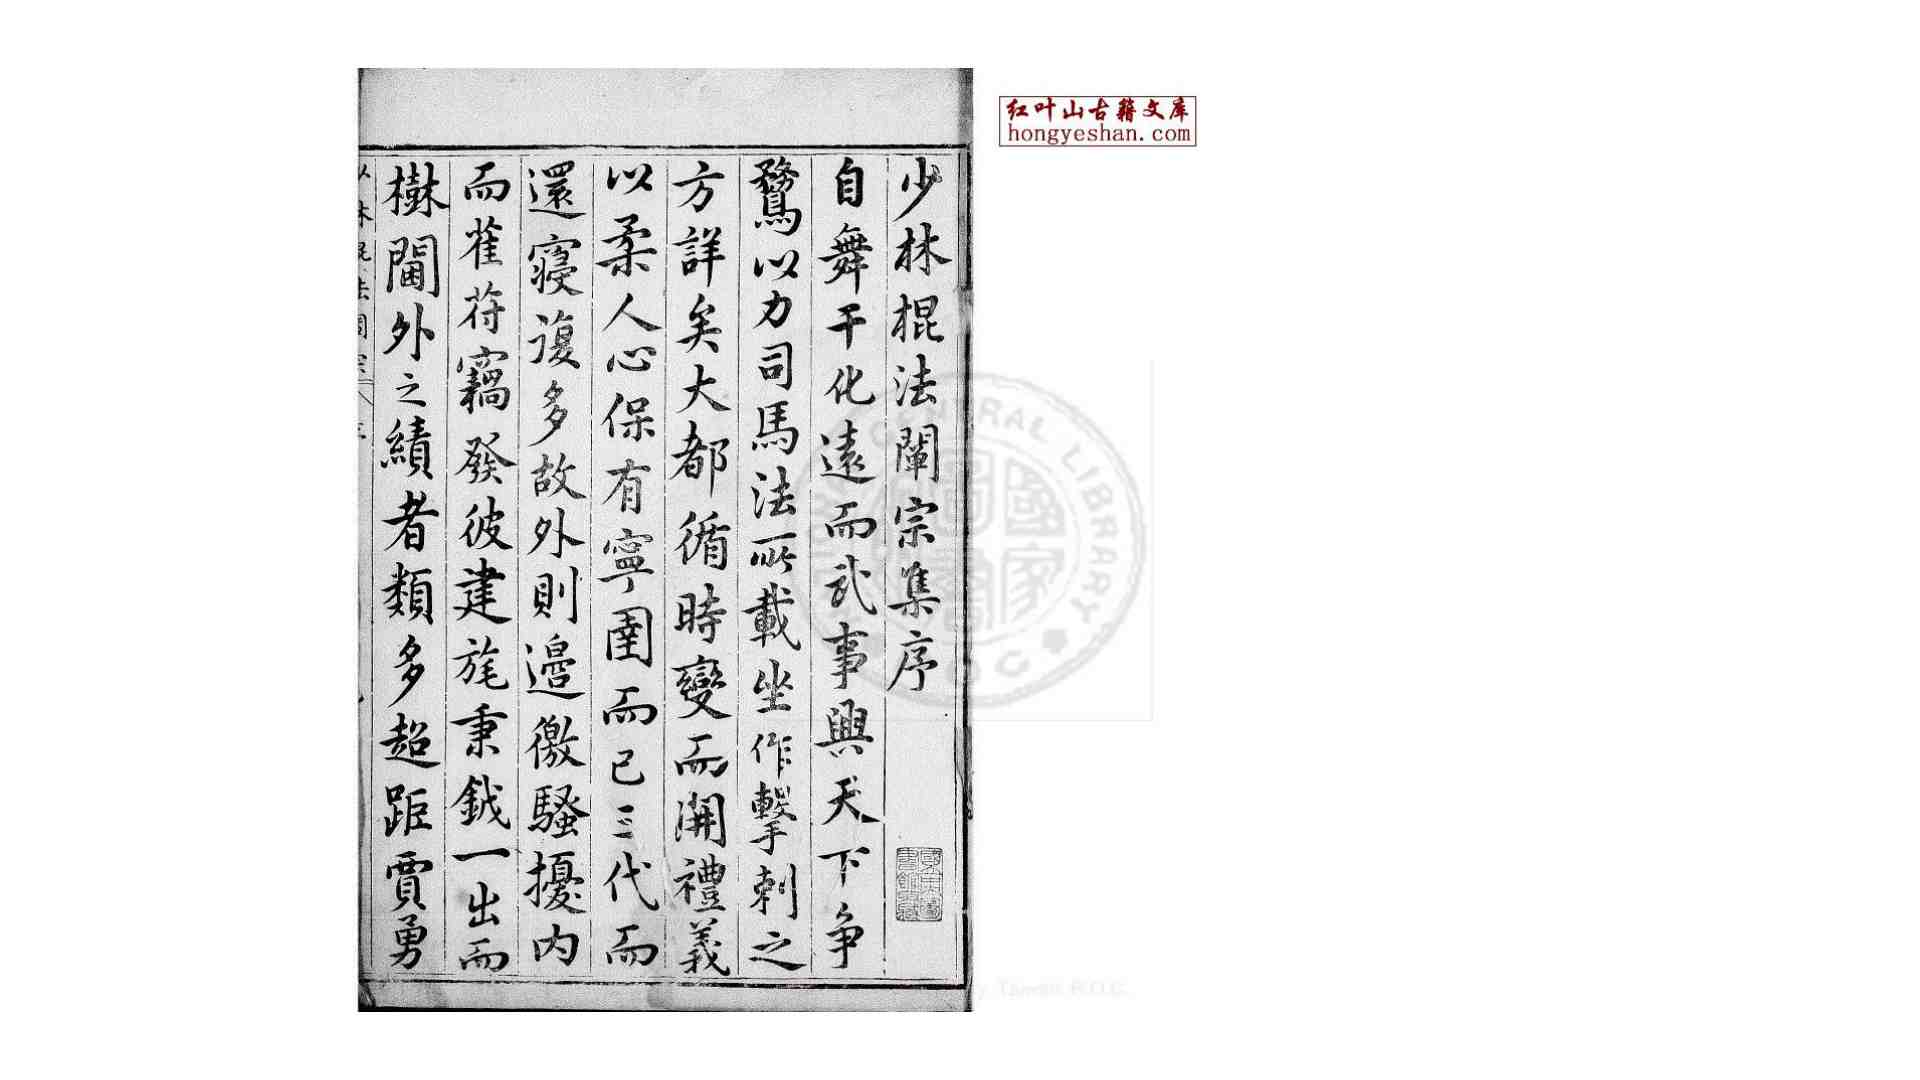 少林棍法闡宗集序
自舞干化遠而武事興天下爭
鶩以力司馬法所載坐作擊刺之
方詳矣大都循時變而開禮義
以柔人心保有寧圉而已三代而
還寢復多故外則邊徼騷擾內
而萑苻竊發彼建旄秉鉞一出而
樹閫外之績者類多超距賈勇
红叶山古籍文库
hongyeshan.com
CENTRAL LIBRARY
Taiwan, R.O.C.